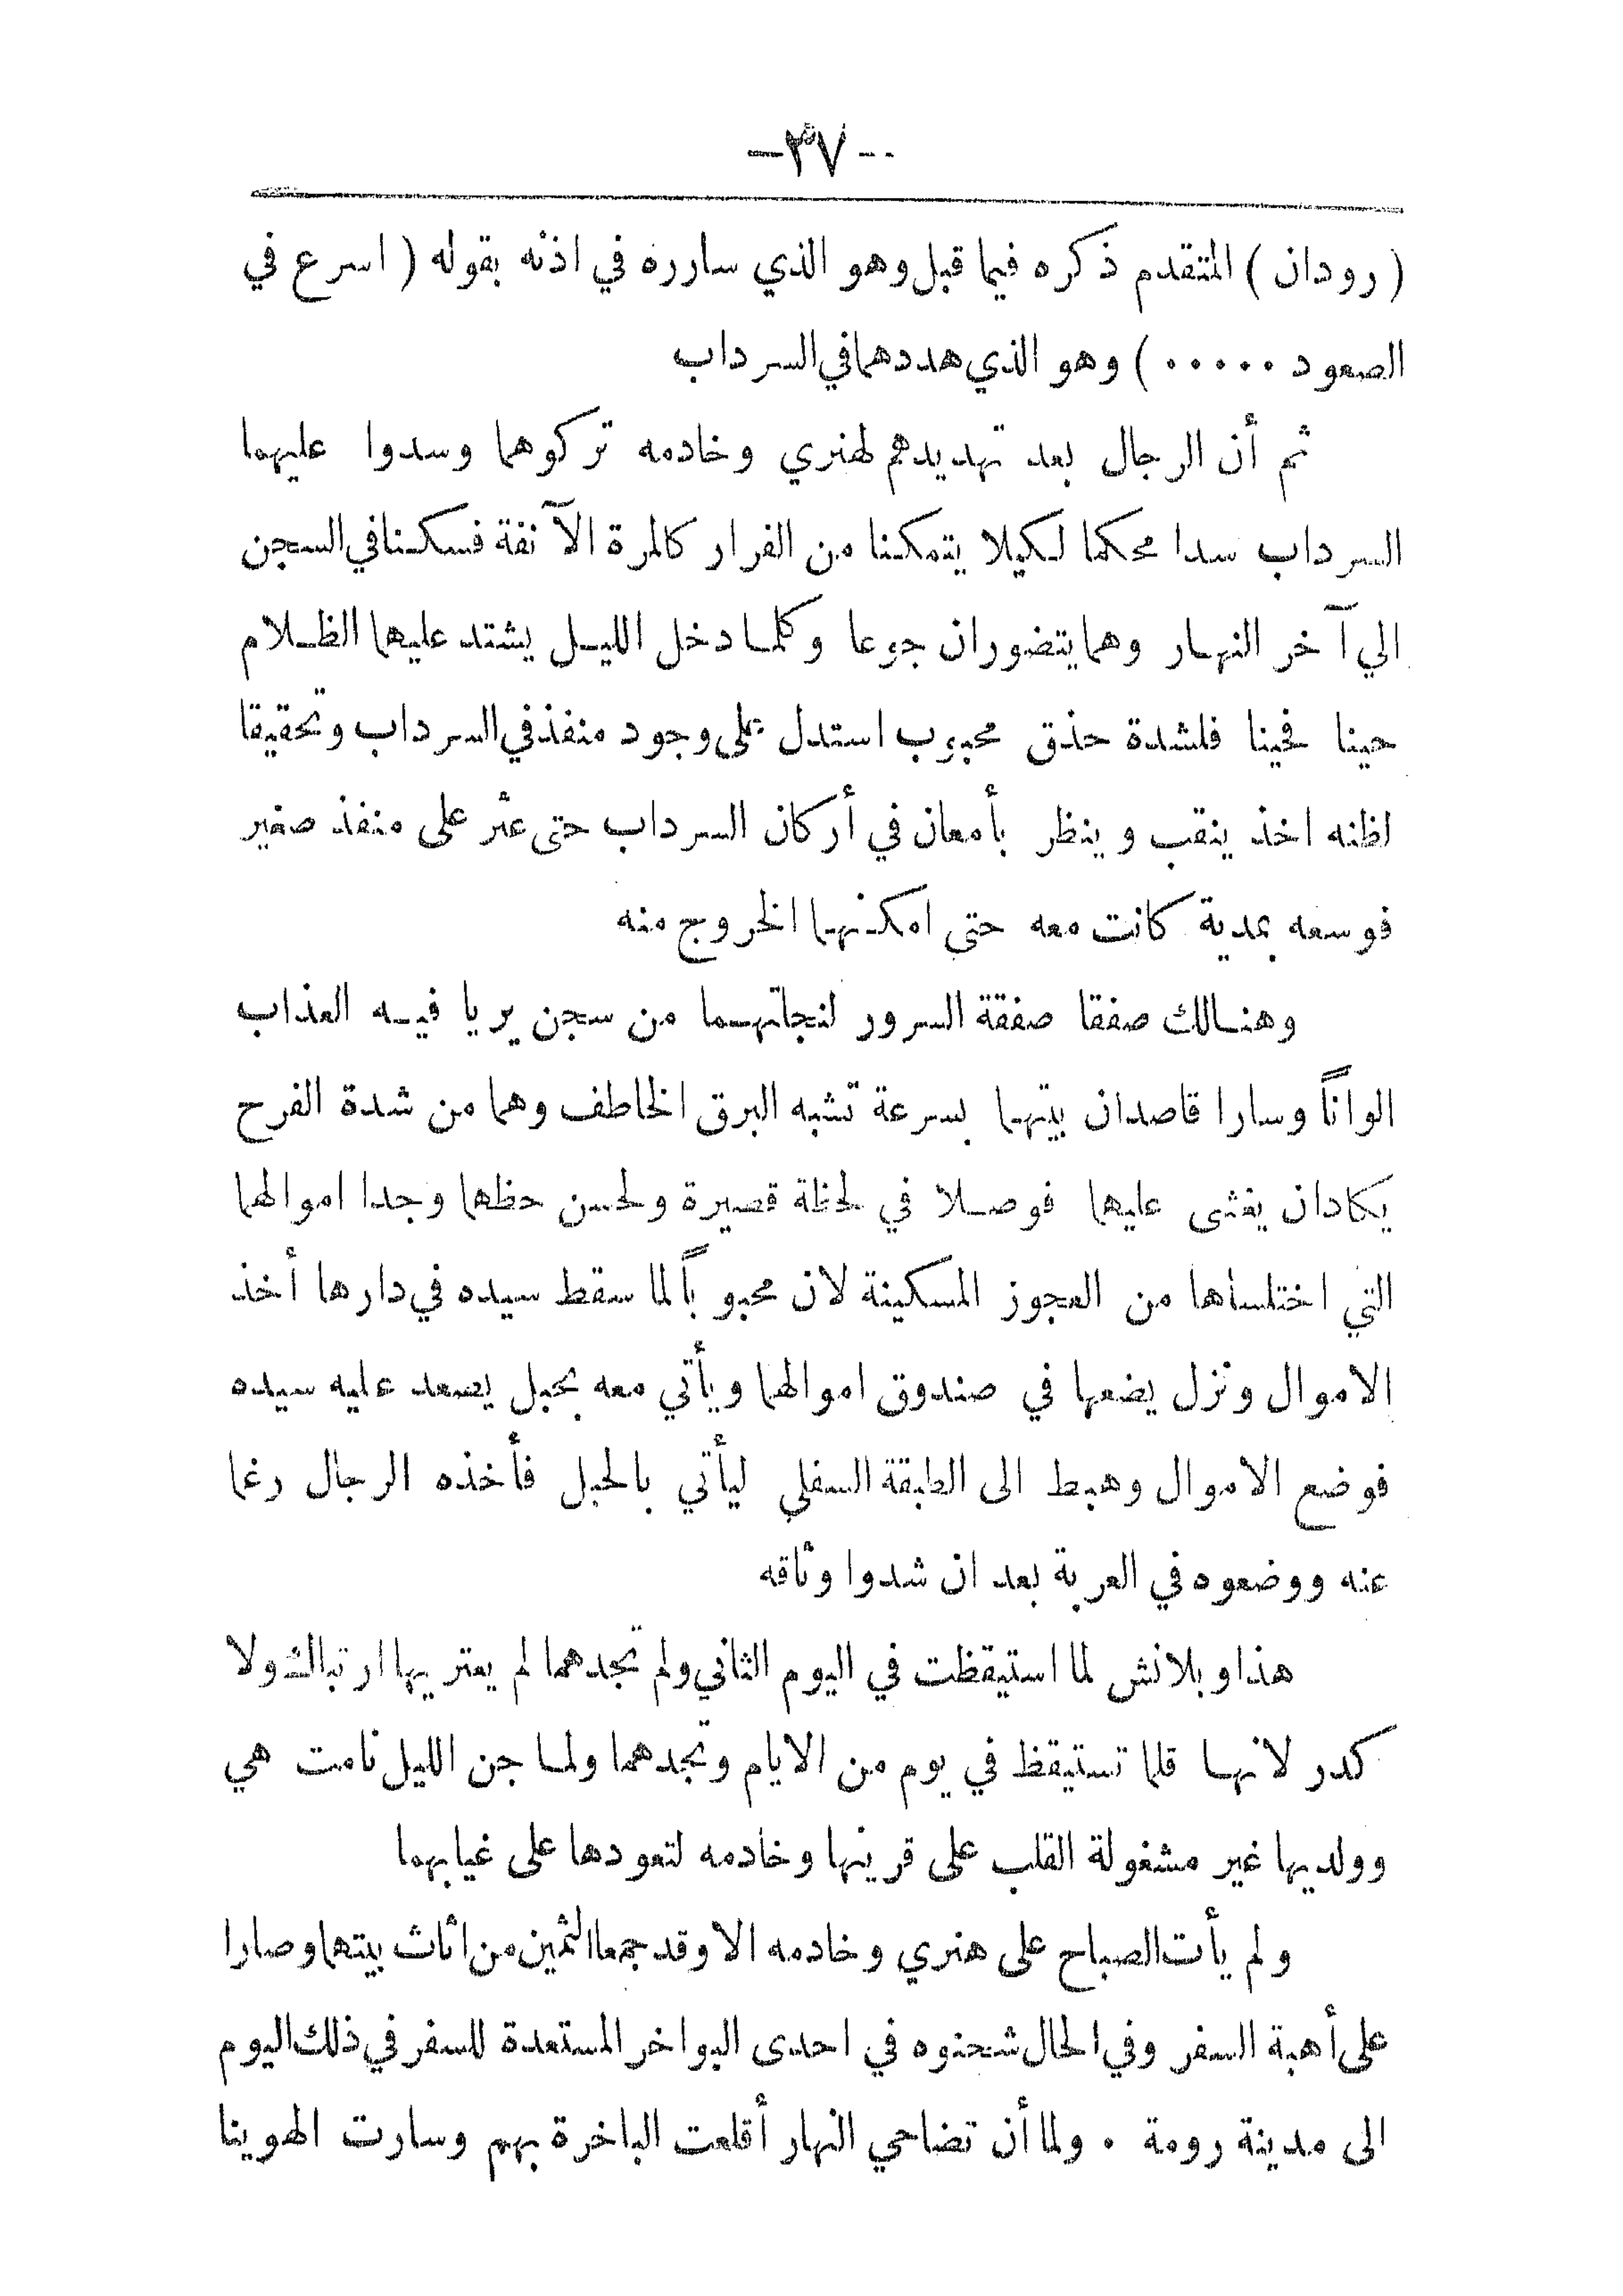 -٣٧-
( رودان ) المتقدم ذكره فيما قبل وهو الذي سارره في اذنه بقوله ( اسرع في
الصعود ٠٠٠٠٠ ) وهو الذي هددهما في السرداب
ثم أن الرجال بعد تهديدهم لهنري وخادمه تركوهما وسدوا عليهما
السرداب سدا محكما لكيلا يتمكنا من الفرار كالمرة الآنفة فسكنا في السجن
الي آخر النهار وهما يتضوران جوعا وكلما دخل الليل يشتد عليهما الظلام
حينا فحينا فلشدة حذق محبوب استدل على وجود منفذ في السرداب وتحقيقا
لظنه اخذ ينقب وينظر بأمعان في أركان السرداب حتى عثر على منفذ صغير
فوسعه بمدية كانت معه حتى امكنهما الخروج منه
وهنالك صفقا صفقة السرور لنجاتهما من سجن يريا فيه العذاب
الواناً وسارا قاصدان بيتهما بسرعة تشبه البرق الخاطف وهما من شدة الفرح
يكادان يغشى عليهما فوصلا في لحظة قصيرة ولحسن حظهما وجدا اموالهما
التي اختلساها من العجوز المسكينة لان محبوباً لما سقط سيده في دارها أخذ
الاموال ونزل يضعها في صندوق اموالهما ويأتي معه بحبل يصعد عليه سيده
فوضع الاموال وهبط الى الطبقة السفلي ليأتي بالحبل فأخذه الرجال رغما
عنه ووضعوه في العربة بعد ان شدوا وثاقه
هذا وبلانش لما استيقظت في اليوم الثاني ولم تجدهما لم يعتريها ارتباك ولا
كدر لانها قلما تستيقظ في يوم من الايام وتجدهما ولما جن الليل نامت هي
وولديها غير مشغولة القلب على قرينها وخادمه لتعودها على غيابهما
ولم يأت الصباح على هنري وخادمه الا وقد جمعا الثمين من اثاث بيتهما وصارا
على أهبة السفر وفي الحال شحنوه في احدى البواخر المستعدة للسفر في ذلك اليوم
الى مدينة رومة . ولما أن تضاحي النهار أقلعت الباخرة بهم وسارت الهوينا